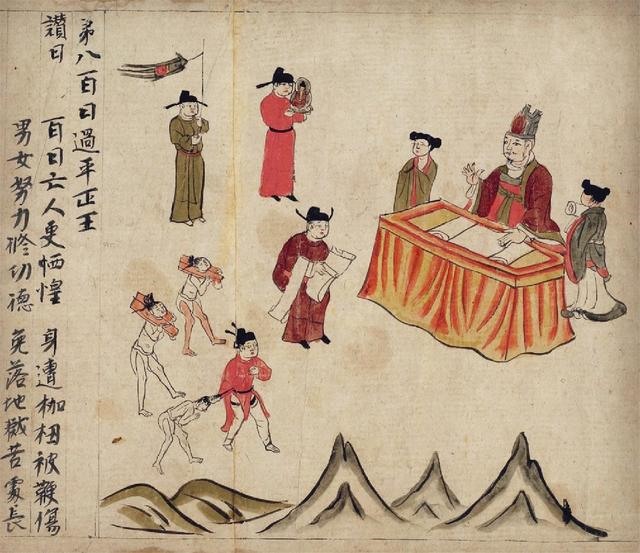 第八百日過平正王
讃曰 百日亡人更恓惶 身遭枷杻被鞭傷
男女努力修功德 免落地獄苦處長